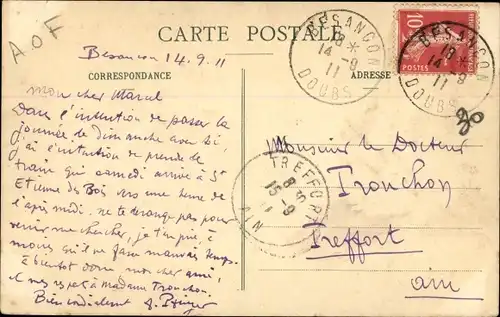 CARTE POSTALE
A O F
BESANÇON
18
14 -9
11
DOUBS
10
POSTES
BESANÇON
18
14 -9
11
DOUBS
Besançon 14.9.11
CORRESPONDANCE
ADRESSE
30
mon cher Marcel
Dans l'intention de passer la
journée de dimanche avec toi,
j'ai l'intention de prendre le
train qui samedi arrive à St
Etienne des Bois vers une heure de
l'après midi. ne te dérange pas pour
venir me chercher, je t'en prie, à
moins qu'il ne fasse mauvais temps.
à bientôt donc mon cher ami,
et mes respects à madame Tronchon
Bien cordialement
TREFFORT
15 -9
AIN
Monsieur le Docteur
Tronchon
Treffort
ain